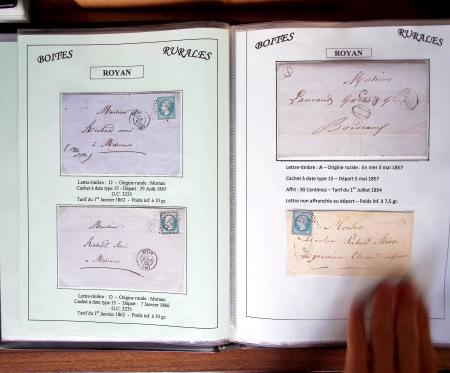 BOITES RURALES
ROYAN
Monsieur
à Marennes
Lettre-timbre : D - Origine rurale : Mornac
Cachet à date type 15 - Départ : 29 Août 1865
G.C. 3233
Tarif du 1er Janvier 1862 - Poids inf. à 10 gr.
Monsieur
à Marennes
Lettre-timbre : D - Origine rurale : Mornac
Cachet à date type 15 - Départ : 7 Janvier 1866
G.C. 3233
Tarif du 1er Janvier 1862 - Poids inf. à 10 gr.
BOITES RURALES
ROYAN
Messieurs
Bordeaux
Lettre-timbre : A – Origine rurale : En mer 3 mai 1857
Cachet à date type 15 - Départ 5 mai 1857
Affrt : 30 Centimes – Tarif du 1er Juillet 1854
Lettre non affranchie au départ – Poids inf. à 7,5 gr.